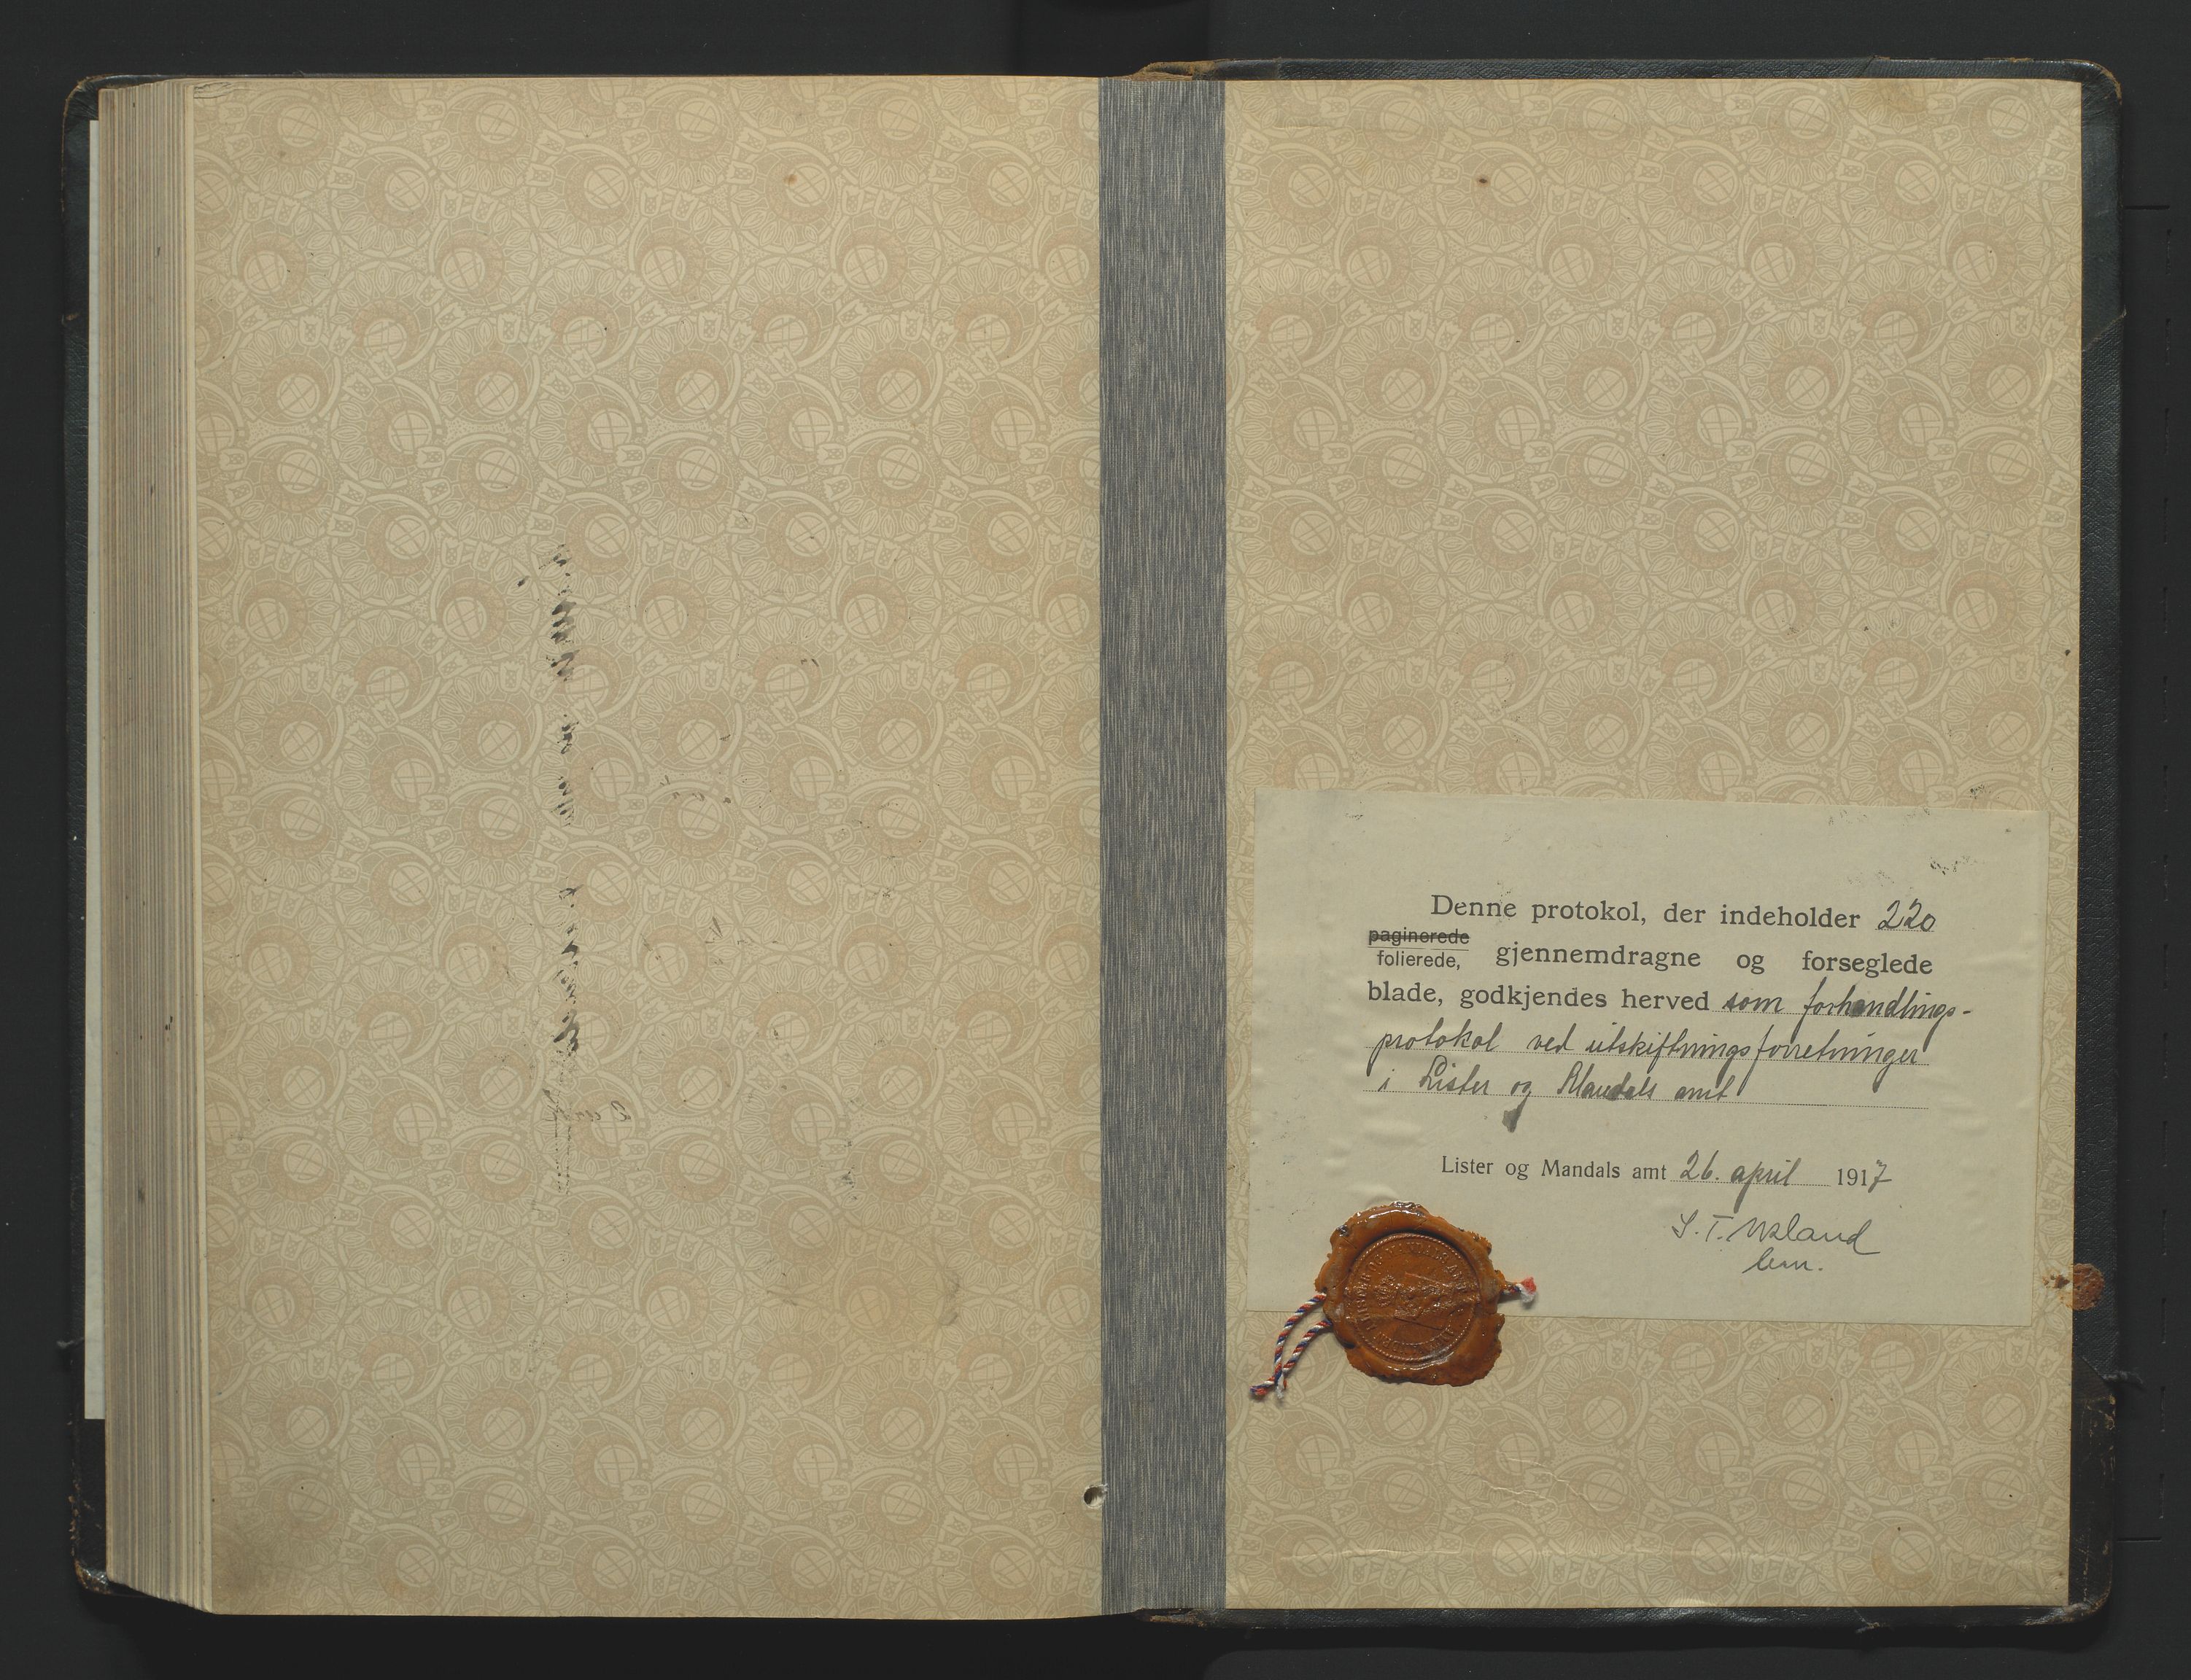 Denne protokol, der indeholder 220
paginerede
folierede, gjennemdragne og forseglede
blade, godkjendes herved som forhandlings-
protokol ved utskiftningsforretninger
i Lister og Mandals amt
Lister og Mandals amt 26. april 1917
S. T.